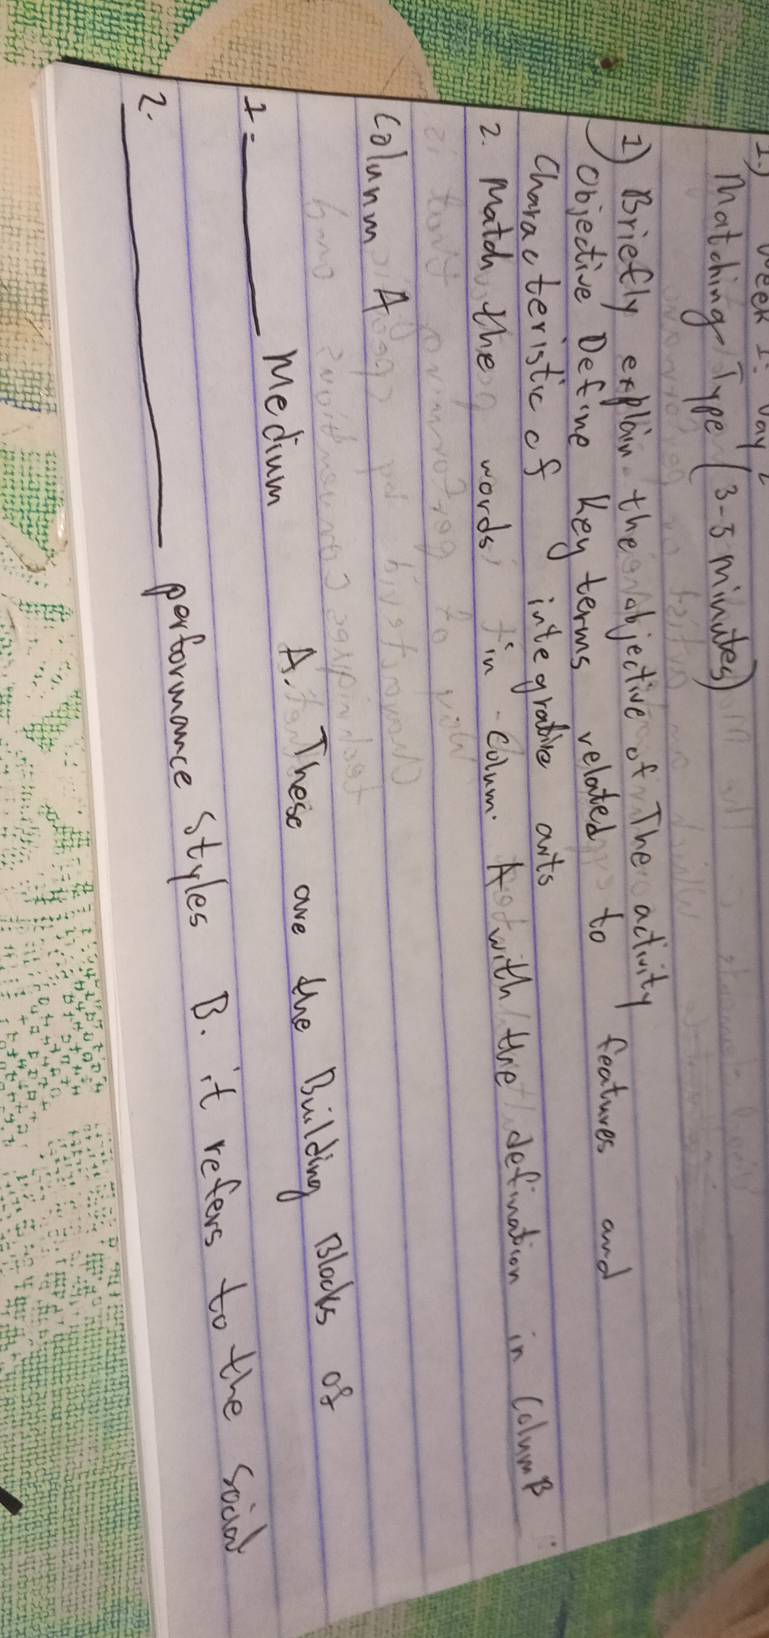 1.) Week 1: Day 2
Matching Type (3-5 minutes)
1) Briefly explain the objective of The activity
) Objective Define Key terms related to features and
Characteristic of integrative arts
2. Match the words in colum A with the defination in Colum B
Colunm A
1. ______ Medium A. These are the Building Blocks of
2. ______ performance Styles B. it refers to the social